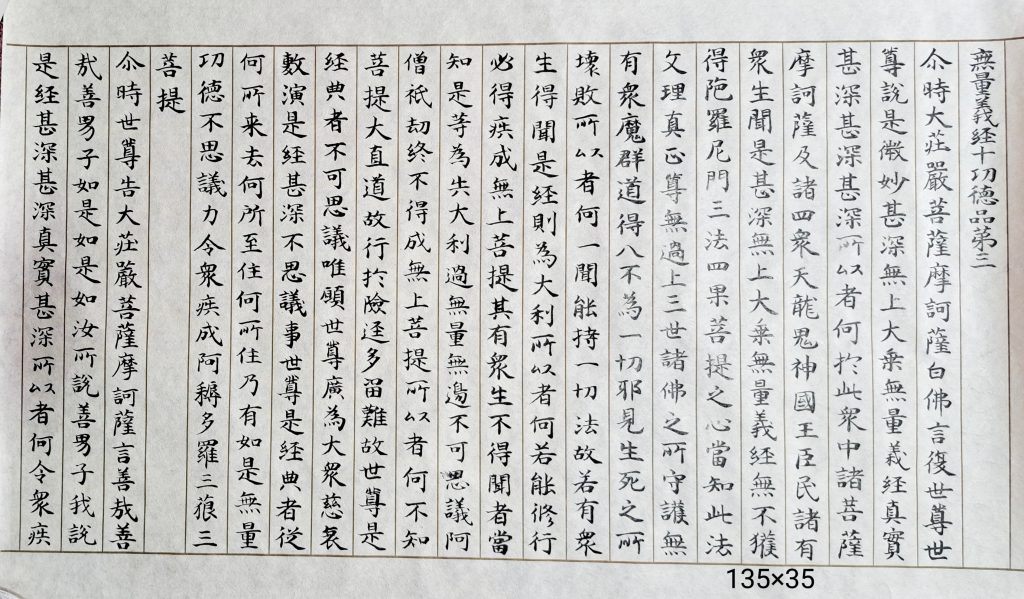 無量義経十功徳品第三
尒時大荘嚴菩薩摩訶薩白佛言復世尊世
尊說是微妙甚深無上大乗無量義経真實
甚深甚深甚深所以者何於此衆中諸菩薩
摩訶薩及諸四衆天龍鬼神國王臣民諸有
衆生聞是甚深無上大乗無量義経無不獲
得陁羅尼門三法四果菩提之心當知此法
文理真正尊無過上三世諸佛之所守護無
有衆魔群道得入不為一切邪見生死之所
壊敗所以者何一聞能持一切法故若有衆
生得聞是経則為大利所以者何若能修行
必得疾成無上菩提其有衆生不得聞者當
知是等為失大利過無量無邊不可思議阿
僧祇劫終不得成無上菩提所以者何不知
菩提大直道故行於險逕多留難故世尊是
経典者不可思議唯願世尊廣為大衆慈哀
敷演是経甚深不思議事世尊是経典者従
何所来去何所至住何所住乃有如是無量
功徳不思議力令衆疾成阿耨多羅三藐三
菩提
尒時世尊告大荘嚴菩薩摩訶薩言善哉善
哉善男子如是如是如汝所說善男子我說
是経甚深甚深真實甚深所以者何令衆疾
135×35